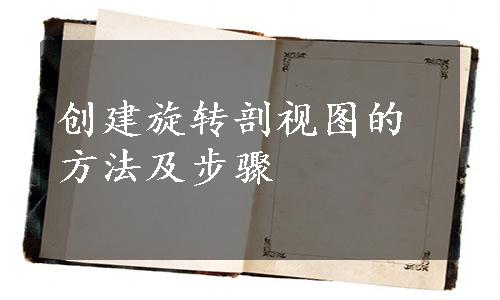 创建旋转剖视图的
方法及步骤